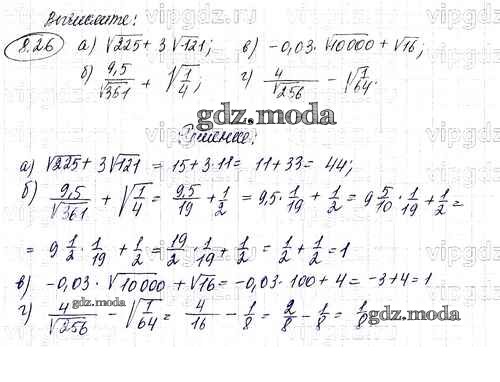 Вычислите:
8.26 а) √225 + 3√121; в) -0,03·√10000 + √16;
б) 9,5/√361 + √1/4; г) 4/√256 - √1/64.
gdz.moda
Решение:
а) √225 + 3√121 = 15 + 3·11 = 11 + 33 = 44;
б) 9,5/√361 + √1/4 = 9,5/19 + 1/2 = 9,5·1/19 + 1/2 = 9 5/10·1/19 + 1/2 =
= 9 1/2·1/19 + 1/2 = 19/2·1/19 + 1/2 = 1/2 + 1/2 = 1
в) -0,03·√10000 + √16 = -0,03·100 + 4 = -3 + 4 = 1
г) 4/√256 √1/64 = 4/16 - 1/8 = 2/8 - 1/8 = 1/8
gdz.moda
gdz.moda
vipgdz.com